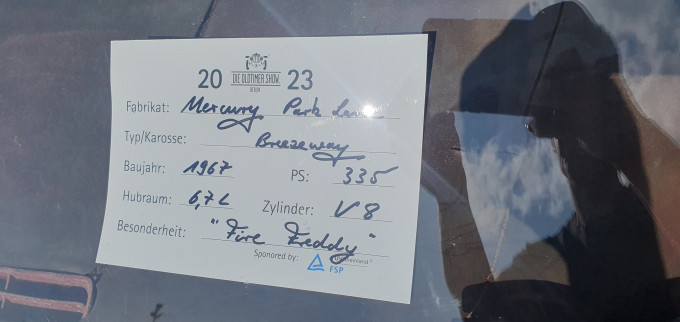 20 DIE OLDTIMER SHOW. 23
BERLIN
Fabrikat: Mercury Park Lane
Typ/Karosse: Breezeway
Baujahr: 1967 PS: 335
Hubraum: 6,7 L Zylinder: V8
Besonderheit: "Fire Freddy"
Sponsored by: TÜVRheinland®
FSP